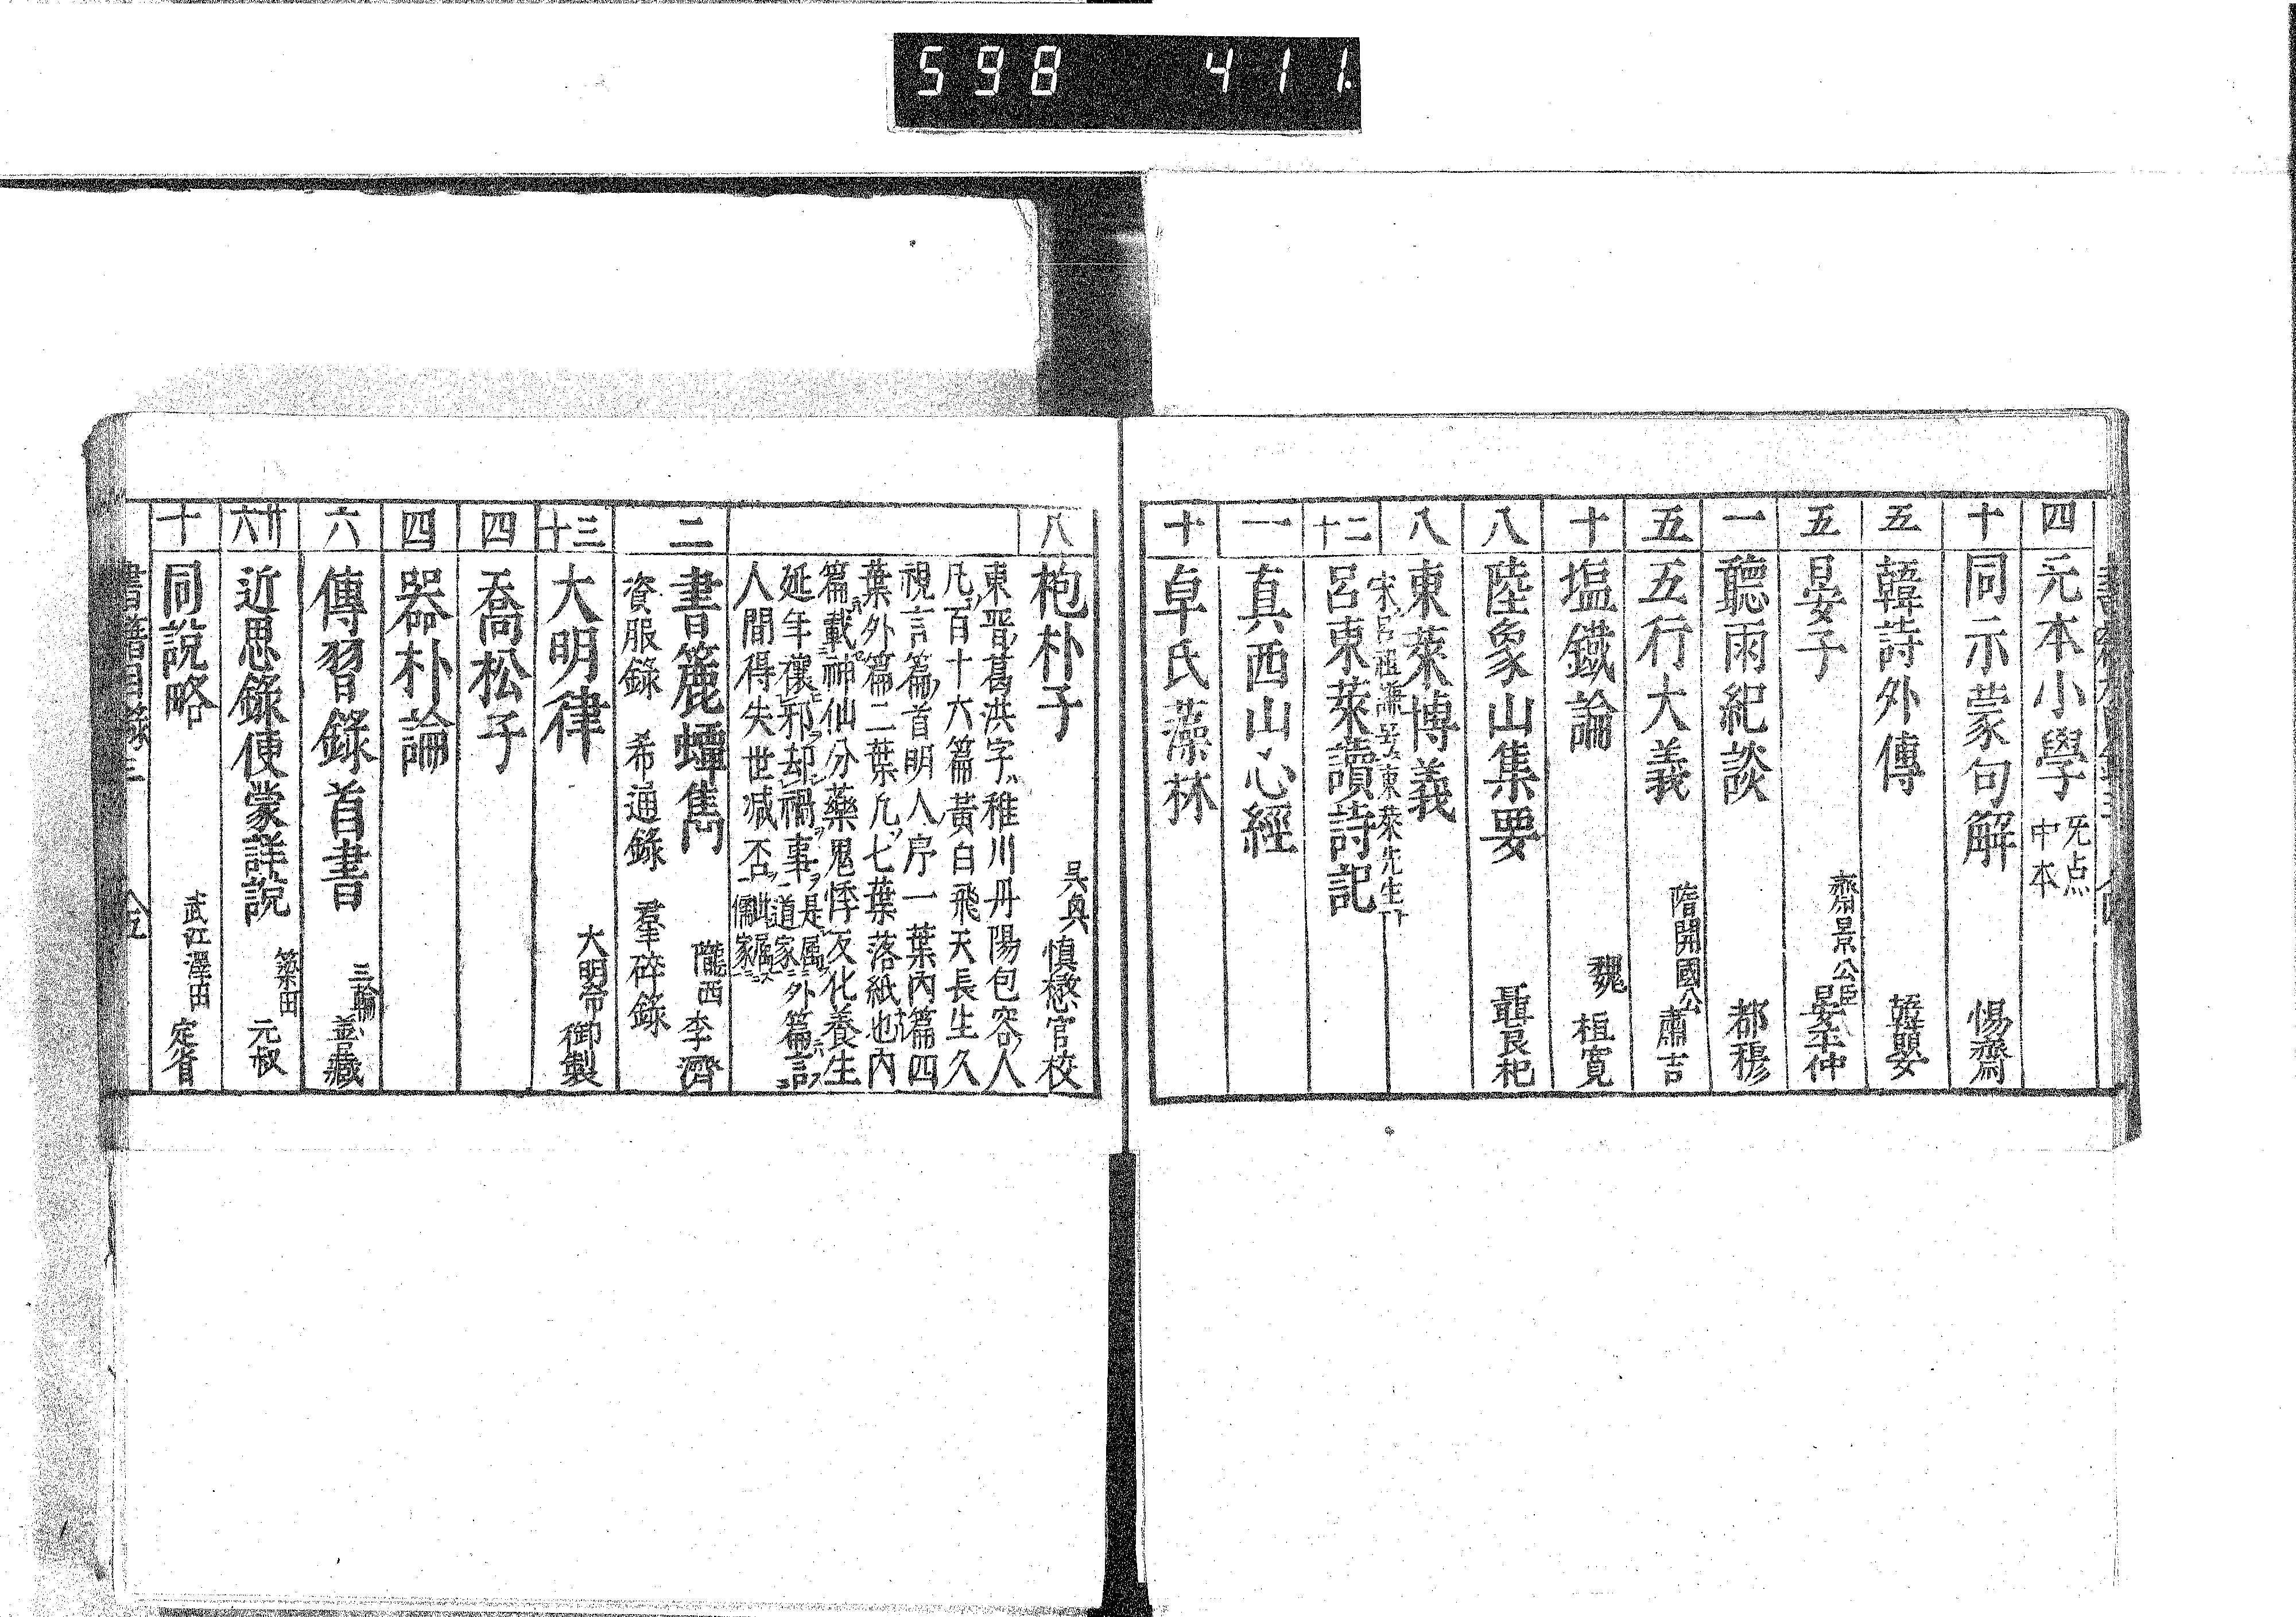 598 411
四 元本小學 旡点 中本
十 同示蒙句解 惕齋
五 韓詩外傳 韓嬰
五 晏子 齋景公臣 晏平仲
一 聽雨紀談 都穆
五 五行大義 隋開國公 蕭吉
十 塩鐵論 魏 桓寛
八 陸象山集要 聶良杞
八 東萊博義
宋呂祖謙 東萊先生
十二 呂東萊讀詩記
一 真西山心經
十 卓氏藻林
八 枹朴子 吴興 慎懋官校
東晋葛洪字稚川丹陽包容人
凡百十六篇黃白飛天長生久
視言篇首明人序一葉內篇四
葉外篇二葉凢七葉落紙也內
篇載神仙分藥鬼恠反化養生
延年穰邪却禍事是属道家外篇言
人間得失世減否此属儒家
二 書簏蟫雋 隴西 李濟
資服錄 希通錄 羣碎錄
十三 大明律 大明帝 御製
四 喬松子
四 器朴論
六 傳習錄首書 三輪 善藏
廿六 近思錄便蒙詳説 築田 元叔
十 同説略 武江澤田 定省
書籍目錄三